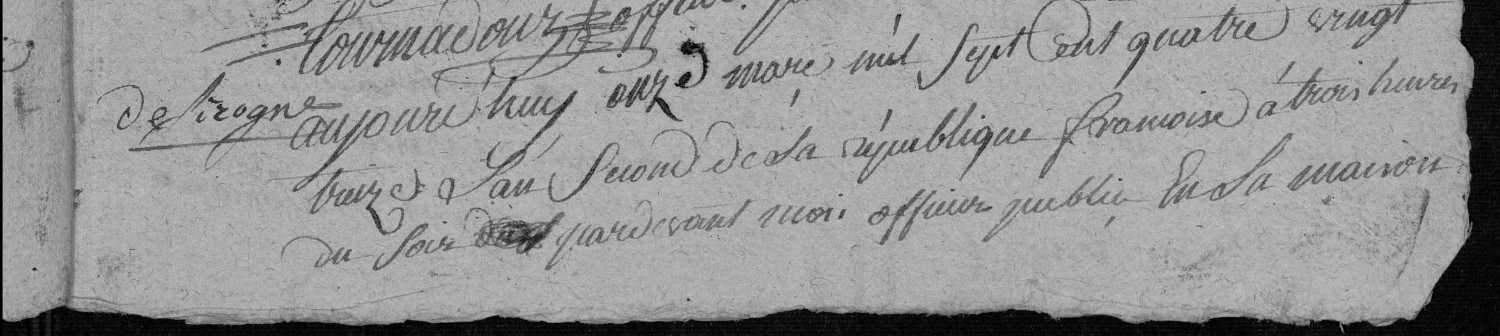 tournadour officier
de Sirogne
aujourd'huy onze mars mil sept cent quatre vingt
treize L'an second de La république francoise à trois heures
du soir pardevant moi officier public En La maison